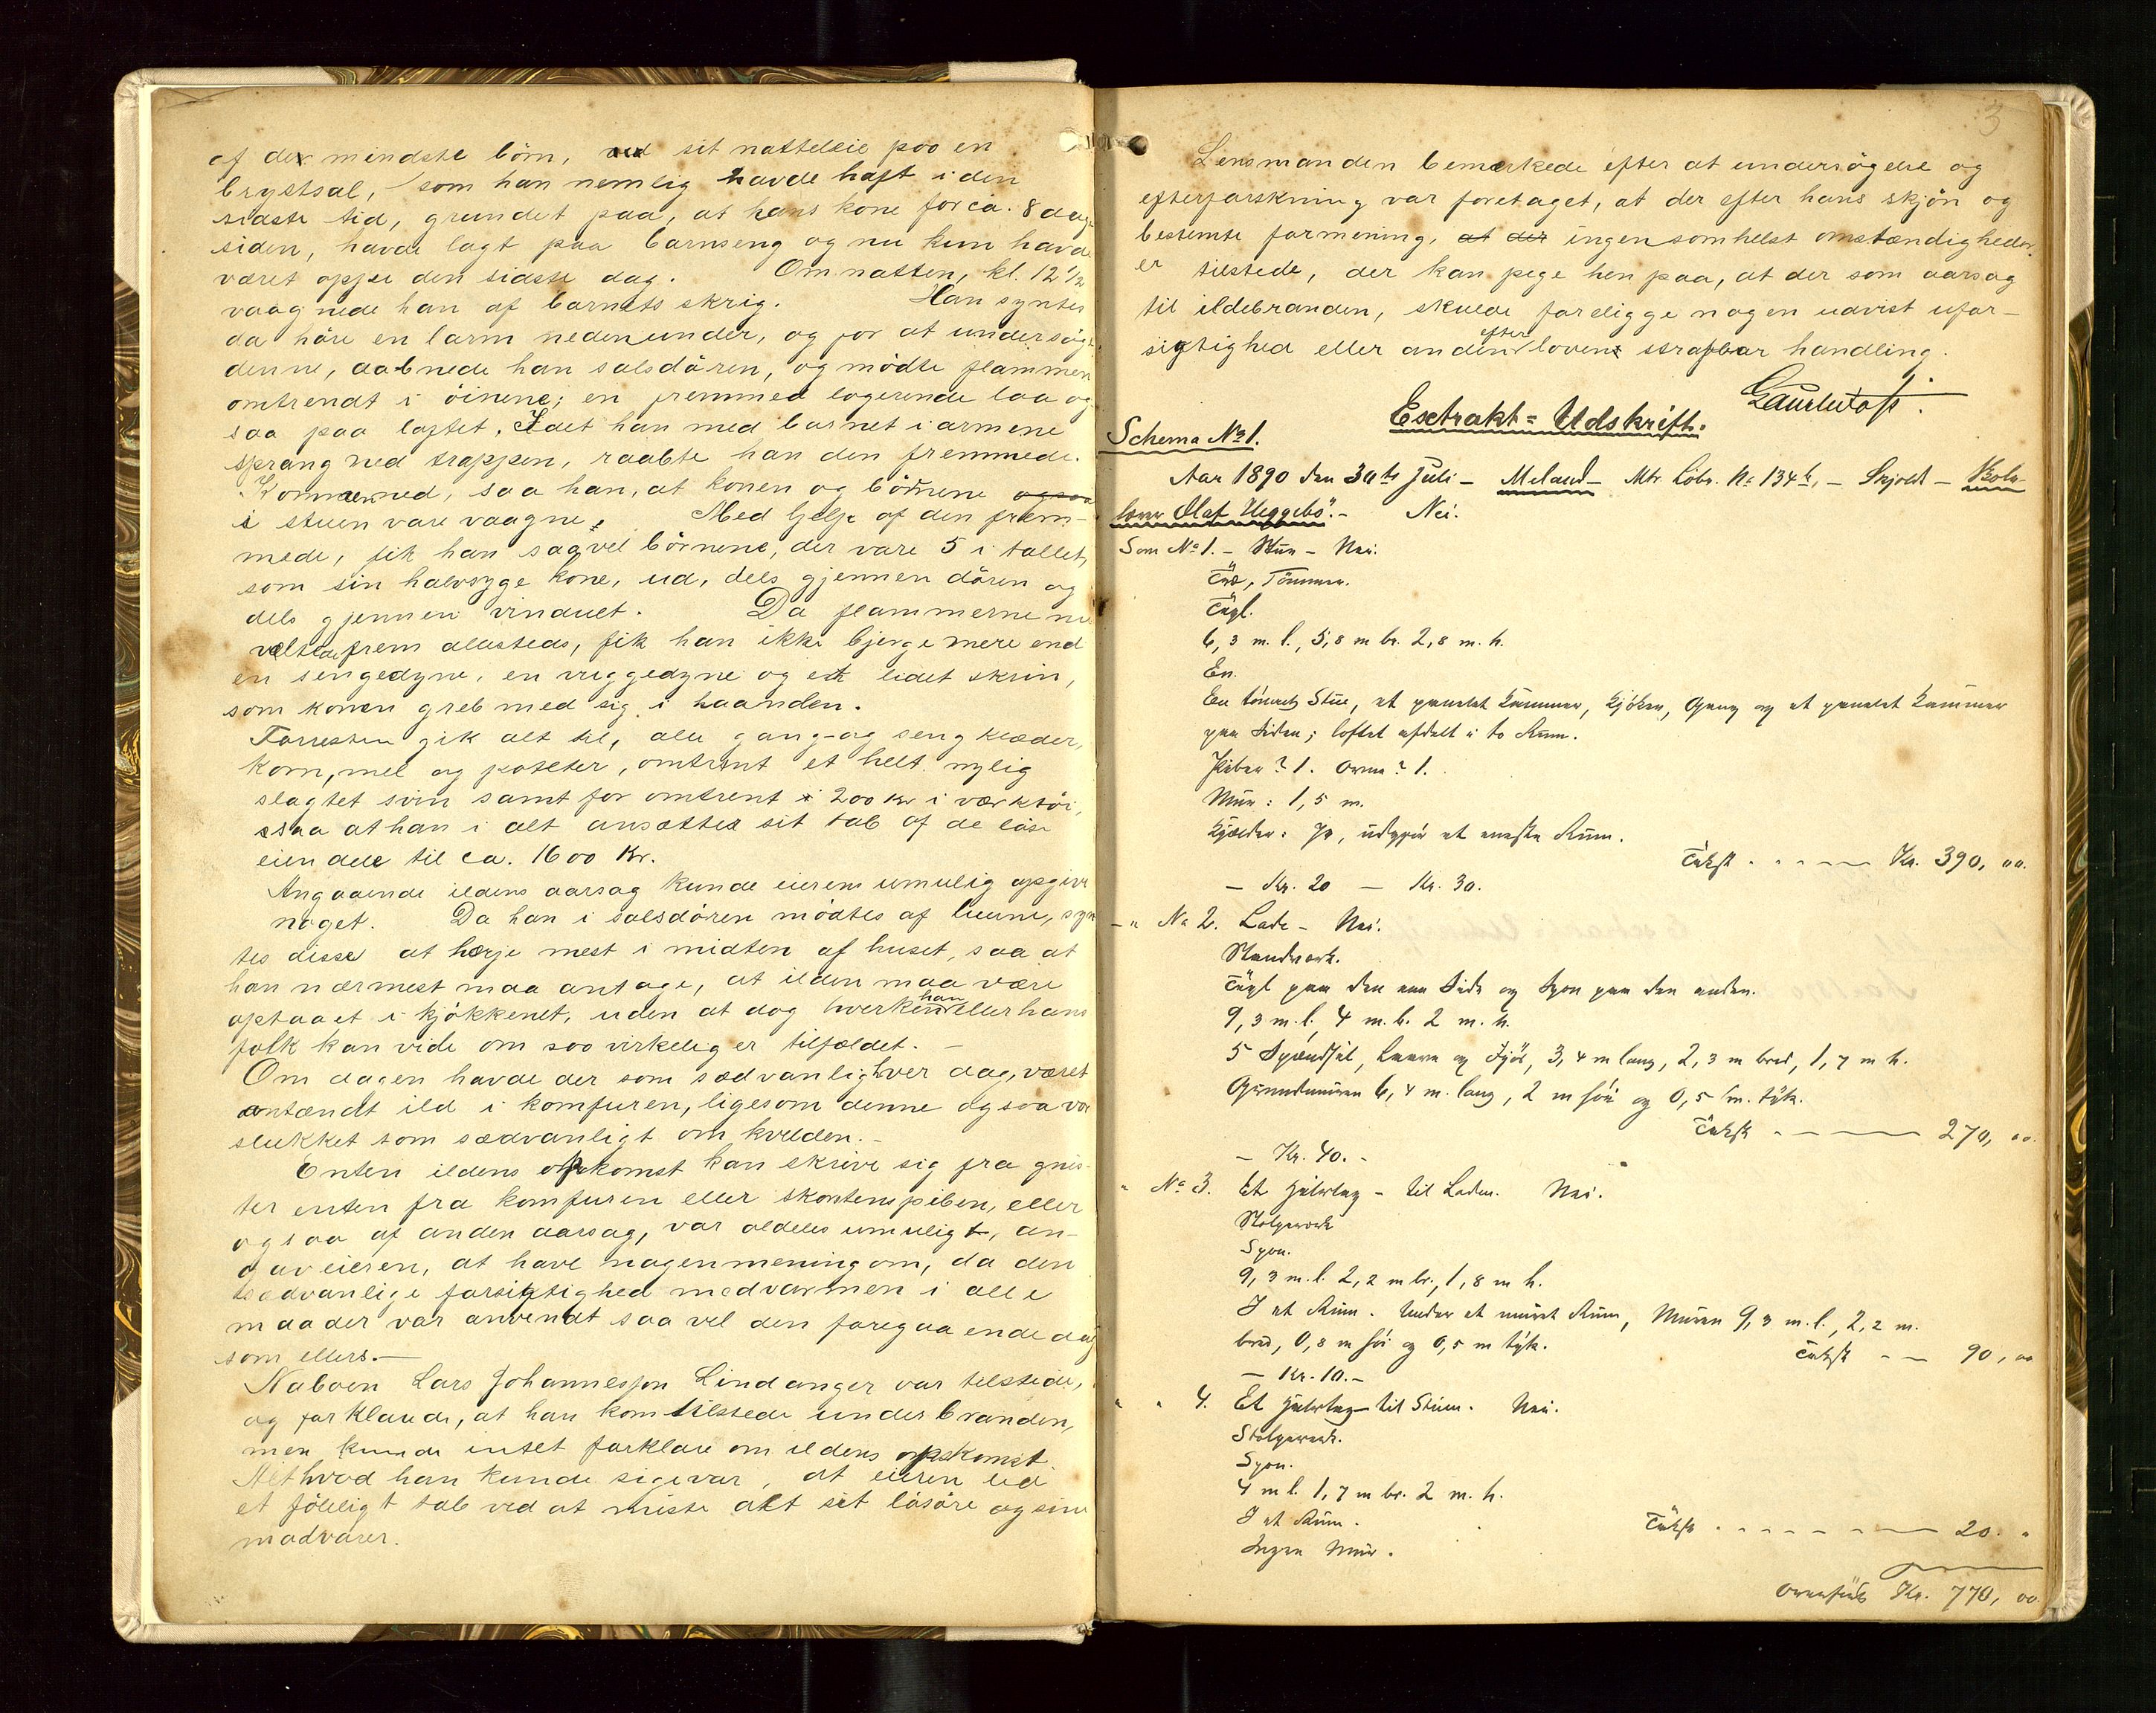 af de mindste börn, ved sit natteleie paa en
brystsal, som han nemlig havde haft i den
sidste tid, grundet paa, at hans kone for ca. 8 dage
siden, havde lagt paa barnseng og nu kun havde
været oppe den sidste dag. Om natten, kl. 12 1/2
vaagnede han af barnets skrig. Han syntes
da höre en larm nedenunder, og for at undersöge
denne, aabnede han salsdören, og mödte flammen
omtrendt i öinene; en fremmed logerende laa og
saa paa loftet. Idet han med barnet i armene
sprang ned trappen, raabte han den fremmede.
Kommen ned, saa han, at konen og börnene ogsaa
i stuen vare vaagne. Med hjelp af den frem-
mede, fik han saavel börnene, der vare 5 i tallet,
som sin halvsyge kone, ud, dels gjennem dören og
dels gjennem vinduet. Da flammerne nu
væltede frem allesteds, fik han ikke bjerge mere end
en sengedyne, en vuggedyne og et lidet skrin,
som konen greb med sig i haanden.
Forresten gik alt til, alle gang- og sengklæder,
korn, mel og poteter, omtrent et helt nylig
slagtet svin samt for omtrent i 200 kr i værktöi,
saa at han i alt ansætter sit tab af de löse
eiendele til ca. 1600 Kr.
Angaaende ildens aarsag kunde eieren umulig opgive
noget. Da han i salsdören mödtes af luerne, syn-
tes disse at herje mest i midten af huset, saa at
han nærmest maa antage, at ilden maa være
opstaaet i kjökkenet, uden at dog hverken han eller hans
folk kan vide om saa virkelig er tilfældet. -
Om dagen havde der som sædvanlig hver dag, været
antændt ild i komfuren, ligesom denne ogsaa var
slukket som sædvanligt om kvelden. -
Enten ildens opkomst kan skrive sig fra gnis-
ter enten fra komfuren eller skorstenspiben, eller
ogsaa af anden aarsag, var aldeles umuligt, an-
gav eieren, at have nogen mening om, da den
sædvanlige forsiktighed med varmen i alle
maader var anvendt saavel den foregaaende dag
som ellers. -
Naboen Lars Johannesson Lindanger var tilstede,
og forklarede, at han kom tilstede under branden,
men kunde intet forklare om ildens opkomst.
Alt hvad han kunde sige var, at eieren led
et föleligt tab ved at miste alt sit lösöre og sine
madvarer.
3
Lensmanden bemærkede efter at undersögelse og
efterforskning var foretaget, at der efter hans skjön og
bestemte formening, at der ingensomhelst omstændigheder
er tilstede, der kan pege hen paa, at der som aarsag
til ildebranden, skulde foreligge nogen udvist ufor-
sigtighed eller anden efter loven strafbar handling.
Extrakt-Udskrift.
Schema No 1.
Aar 1890 den 30te Juli - Meland - Mtr. Löbr. No 134b, - Skjold - Skole-
lærer Olaf Heggebö. - Nei.
Som No 1. - Stue - Nei.
Tag, Tömmer.
Tagl.
6,3 m. l., 5,8 m br. 2,8 m. h.
En.
En tömret Stue, et panelet Kammer, Kjöken, Gang og et panelet Kammer
paa Siden; loftet afdelt i to Rum.
Piber? 1. Ovne? 1.
Mur: 1,5 m.
Kjælder: Ja, udgjör et eneste Rum.
Takst - - - - Kr. 390,00.
- Kr. 20 - Kr. 30.
- " No 2. Lade - Nei.
Standverk.
Tagl paa den ene Side og Spon paa den anden.
9,3 m. l. 4 m. b. 2 m. h.
5 Spændfal, Laave og Fjös, 3,4 m lang, 2,3 m bred, 1,7 m h.
Grundmuren 6,4 m. lang, 2 m höi og 0,5 m. tyk.
Takst - - - 270,00.
- Kr. 40. -
" No 3. Et Halvtag - til Laden. Nei.
Stolpeverk
Spon.
9,3 m. l. 2,2 m br., 1,8 m h.
I et Rum. Under et muret Rum, Muren 9,3 m. l., 2,2 m.
bred, 0,8 m höi og 0,5 m tyk. Takst - - 90,00
- Kr. 10. -
" " 4. Et Halvtag til Stuen. Nei.
Stolpeverk.
Spon.
4 m l. 1,7 m br. 2 m. h.
I et Rum. Takst - - - - - 20. "
Ingen Mur.
Kr. 770,00.